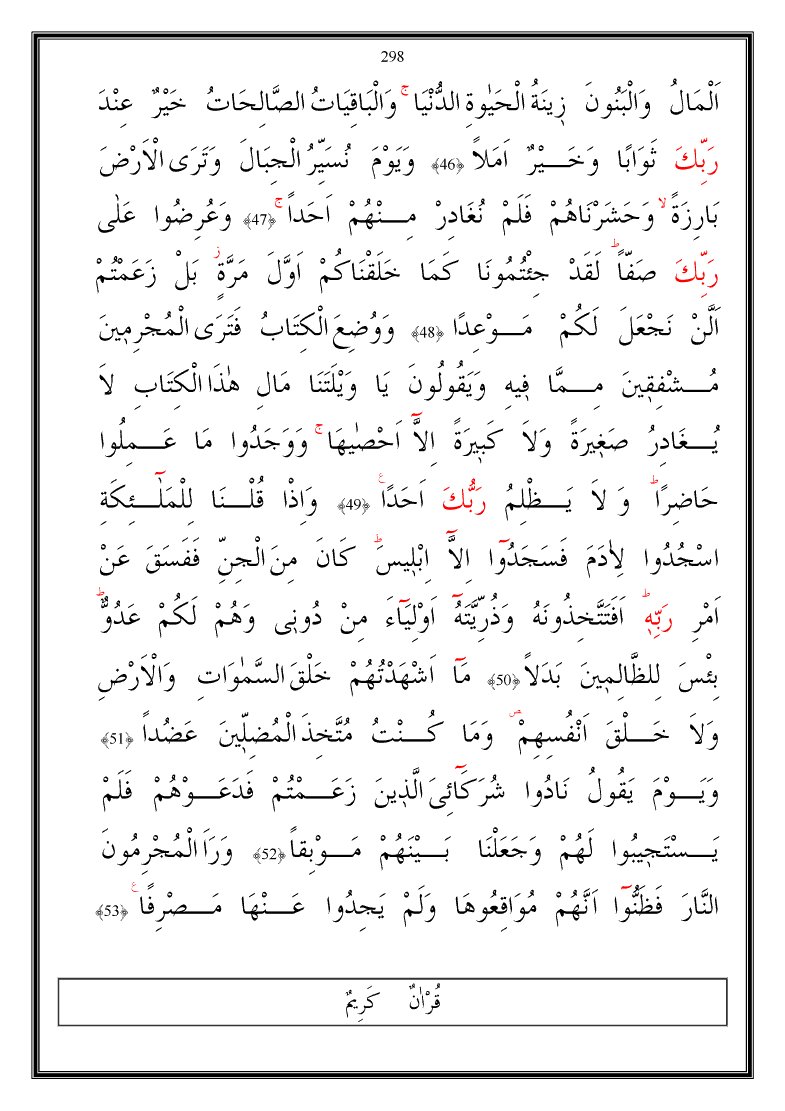 298
اَلْمَالُ وَالْبَنُونَ زٖينَةُ الْحَيٰوةِ الدُّنْيَاۚ وَالْبَاقِيَاتُ الصَّالِحَاتُ خَيْرٌ عِنْدَ
رَبِّكَ ثَوَابًا وَخَـــيْرٌ اَمَلاً ﴿46﴾ وَيَوْمَ نُسَيِّرُ الْجِبَالَ وَتَرَى الْاَرْضَ
بَارِزَةًۙ وَحَشَرْنَاهُمْ فَلَمْ نُغَادِرْ مِـــنْهُمْ اَحَداًۚ ﴿47﴾ وَعُرِضُوا عَلٰى
رَبِّكَ صَفّاًؕ لَقَدْ جِئْتُمُونَا كَمَا خَلَقْنَاكُمْ اَوَّلَ مَرَّةٍؗ بَلْ زَعَمْتُمْ
اَلَّنْ نَجْعَلَ لَكُمْ مَـــوْعِدًا ﴿48﴾ وَوُضِعَ الْكِتَابُ فَتَرَى الْمُجْرِمٖينَ
مُـــشْفِقٖينَ مِـــمَّا فٖيهِ وَيَقُولُونَ يَا وَيْلَتَنَا مَالِ هٰذَا الْكِتَابِ لَا
يُـــغَادِرُ صَغٖيرَةً وَلَا كَبٖيرَةً اِلَّٓا اَحْصٰيهَاۚ وَوَجَدُوا مَا عَـــمِلُوا
حَاضِرًاؕ وَ لَا يَـــظْلِمُ رَبُّكَ اَحَدًاࣖ ﴿49﴾ وَاِذْا قُلْـــنَا لِلْمَلٰٓـــئِكَةِ
اسْجُدُوا لِاٰدَمَ فَسَجَدُٓوا اِلَّٓا اِبْلٖيسَؕ كَانَ مِنَ الْجِنِّ فَفَسَقَ عَنْ
اَمْرِ رَبِّهٖؕ اَفَتَتَّخِذُونَهُ وَذُرِّيَّتَهُٓ اَوْلِيَٓاءَ مِنْ دُونٖى وَهُمْ لَكُمْ عَدُوٌّؕ
بِئْسَ لِلظَّالِمٖينَ بَدَلاً ﴿50﴾ مَٓا اَشْهَدْتُهُمْ خَلْقَ السَّمٰوَاتِ وَالْاَرْضِ
وَلَا خَـــلْقَ اَنْفُسِهِمْࣕ وَمَا كُـــنْتُ مُتَّخِذَ الْمُضِلّٖينَ عَضُداً ﴿51﴾
وَيَـــوْمَ يَقُولُ نَادُوا شُرَكَٓائِىَ الَّذٖينَ زَعَـــمْتُمْ فَدَعَـــوْهُمْ فَلَمْ
يَـــسْتَجٖيبُوا لَهُمْ وَجَعَلْنَا بَـــيْنَهُمْ مَـــوْبِقاً ﴿52﴾ وَرَاَ الْمُجْرِمُونَ
النَّارَ فَظَنُّٓوا اَنَّهُمْ مُوَاقِعُوهَا وَلَمْ يَجِدُوا عَـــنْهَا مَـــصْرِفًاࣖ ﴿53﴾
قُرْاٰنٌ كَرِيمٌ